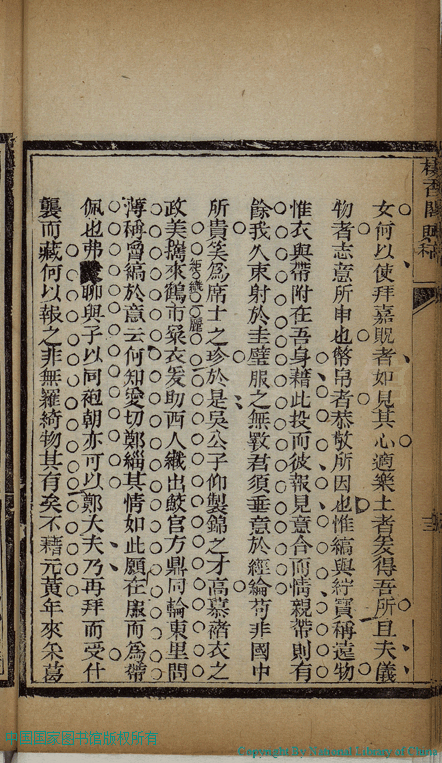 女何以使拜嘉貺者如見其心適樂土者爰得吾所且夫儀
物者志意所申也幣帛者恭敬所因也惟縞與紵寶稱遠物
惟衣與帶附在吾身藉此投而彼報見意合而情親帶則有
餘我久束躬於圭璧服之無斁君須垂意於經綸苟非國中
所貴奚爲席上之珍於是吳公子仰製錦之才高慕褚衣之
政美攜來鶴市裂衣爰助西人織出鮫宮方鼎同輸東里問
薄稱曾縞於意云何知愛切鄭緇其情如此願在康而爲帶
佩也弗聊與子以同袍朝亦可以鄭大夫乃再拜而受什
襲而藏何以報之非無羅綺物其有矣不藉元黃年來朱葛
樓香閣賦稿
中國国家图书馆版权所有
(Copyright By National Library of China